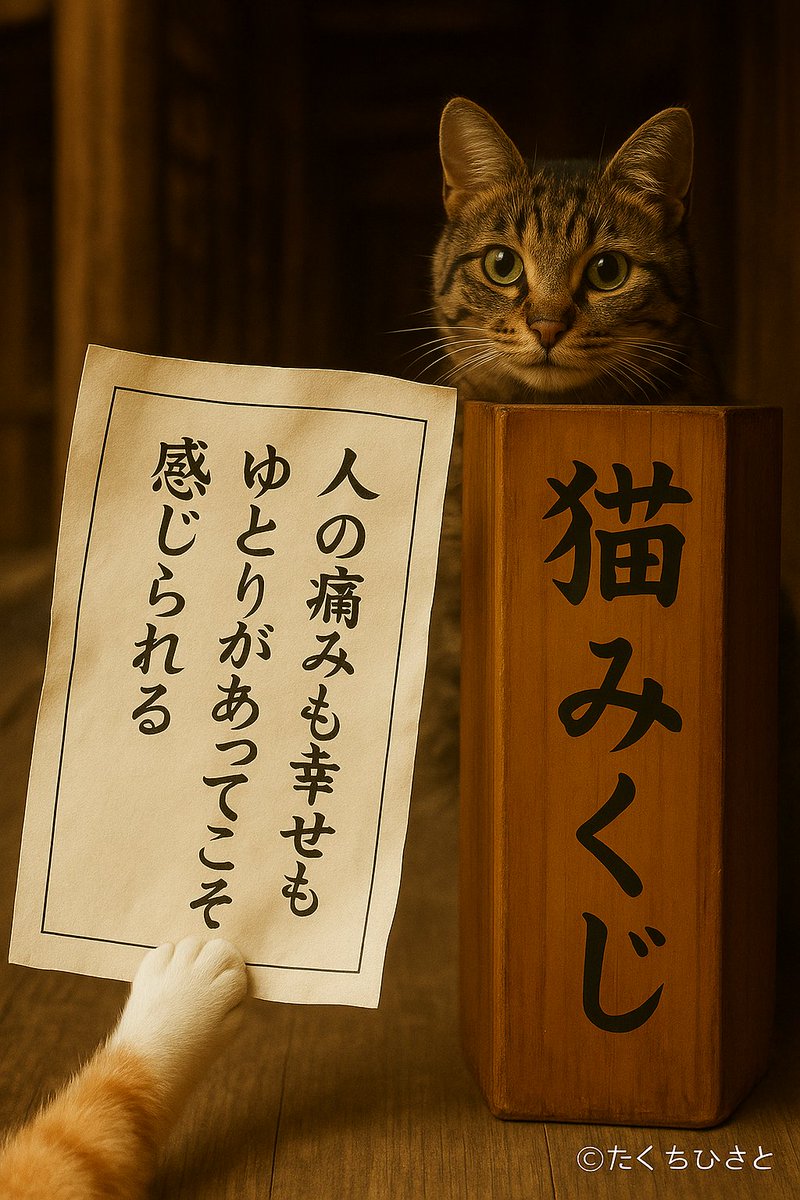 人の痛みも幸せも
ゆとりがあってこそ
感じられる
猫みくじ
©たくちひさと